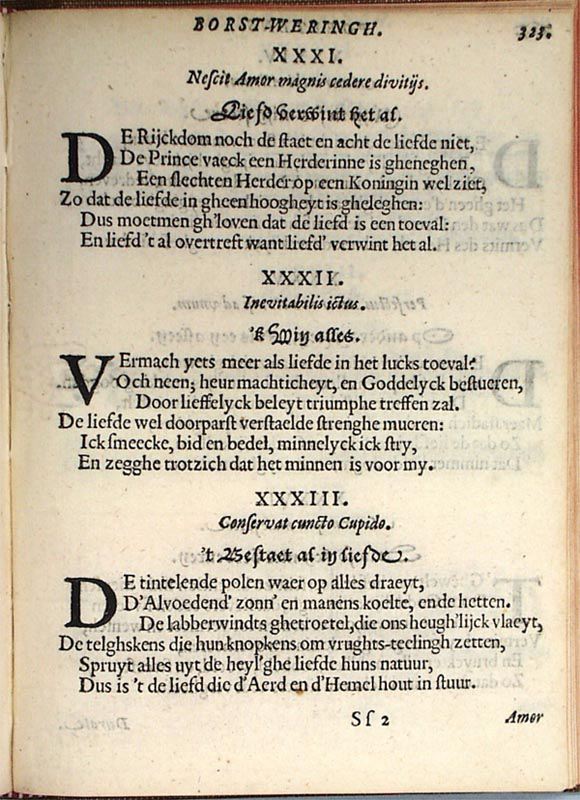 BORST-WERINGH. 323.
XXXI.
Nescit Amor magnis cedere divitijs.
Liefd verwint het al.
DE Rijckdom noch de staet en acht de liefde niet,
De Prince vaeck een Herderinne is gheneghen,
Een slechten Herder op een Koningin wel ziet,
Zo dat de liefde in gheen hoogheyt is gheleghen:
Dus moetmen gh'loven dat de liefd is een toeval:
En liefd 't al overtreft want liefd' verwint het al.
XXXII.
Inevitabilis ictus.
'k Win alles.
VErmach yets meer als liefde in het lucks toeval?
Och neen; heur machticheyt, en Goddelyck bestueren,
Door lieffelyck beleyt triumphe treffen zal.
De liefde wel doorparst verstaelde strenghe mueren:
Ick smeecke, bid en bedel, minnelyck ick stry,
En zegghe trotzich dat het minnen is voor my.
XXXIII.
Conservat cuncto Cupido.
't Bestaet al in liefde.
DE tintelende polen waer op alles draeyt,
D'Alvoedend' zonn' en manens koelte, ende hetten.
De labberwindts ghetroetel, die ons heugh'lijck vlaeyt,
De telghskens die hun knopkens om vrughts-teelingh zetten,
Spruyt alles uyt de heyl'ghe liefde huns natuur,
Dus is 't de liefd die d'Aerd en d'Hemel hout in stuur.
Sſ 2 Amor